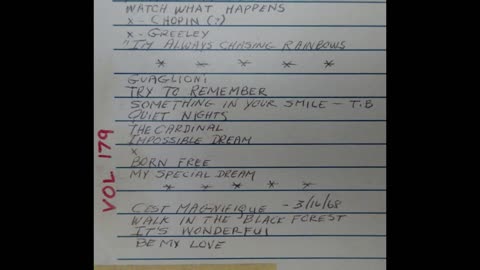 WATCH WHAT HAPPENS
x - CHOPIN (?)
x - GREELEY
"I'M ALWAYS CHASING RAINBOWS
* * * * *
GUAGLIONI
TRY TO REMEMBER
SOMETHING IN YOUR SMILE - T.B
QUIET NIGHTS
THE CARDINAL
IMPOSSIBLE DREAM
x
BORN FREE
MY SPECIAL DREAM
* * * * *
C'EST MAGNIFIQUE - 3/16/68
WALK IN THE BLACK FOREST
IT'S WONDERFUL
BE MY LOVE
VOL 179